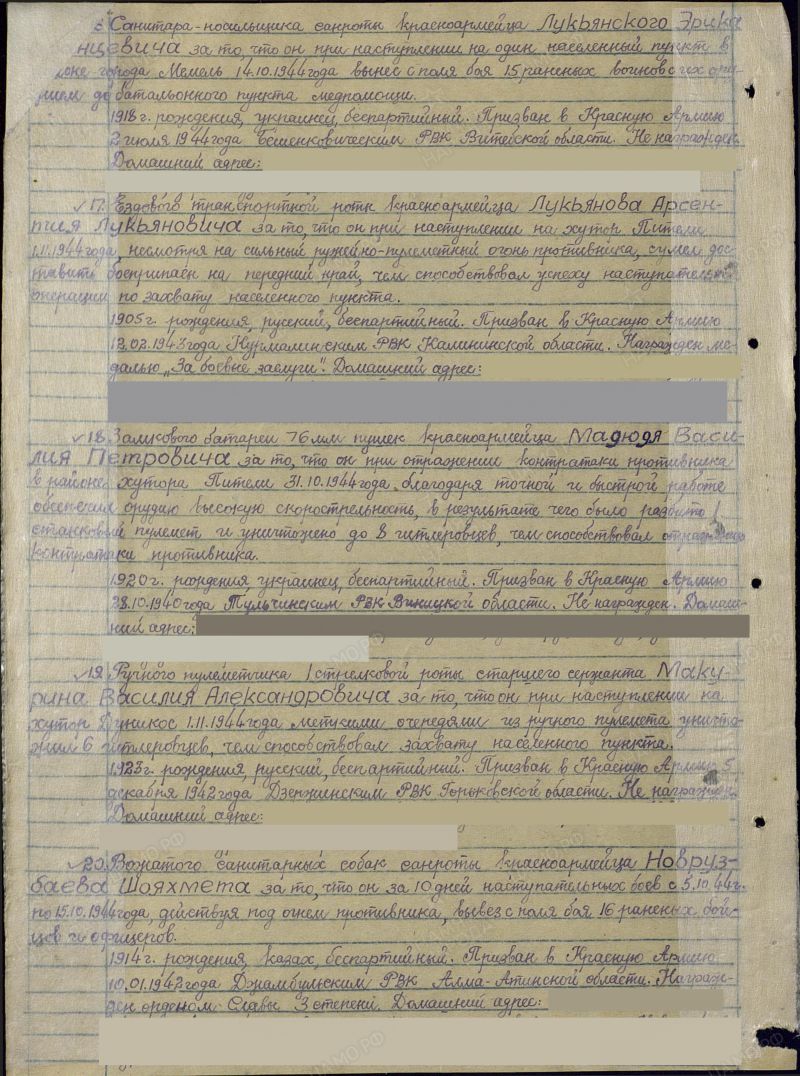 Санитара-носильщика санроты красноармейца Лукьянского Эрика
нцевича за то, что он при наступлении на один населенный пункт в
оне города Мемель 14.10.1944 года вынес с поля боя 15 раненых воинов с их ору-
жием до батальонного пункта медпомощи.
1918 г. рождения, украинец, беспартийный. Призван в Красную Армию
2 июля 1944 года Бешенковическим РВК Витебской области. Не награжден.
Домашний адрес:
17. Ездового транспортной роты красноармейца Лукьянова Арсен-
тия Лукьяновича за то, что он при наступлении на хутор Пители
1.11.1944 года, несмотря на сильный ружейно-пулеметный огонь противника, сумел дос-
тавить боеприпасы на передний край, чем способствовал успеху наступательной
операции по захвату населенного пункта.
1905 г. рождения, русский, беспартийный. Призван в Красную Армию
12.02.1943 года Нурмалинским РВК Калининской области. Награжден ме-
далью „За боевые заслуги". Домашний адрес:
18. Замкового батареи 76 мм пушек красноармейца Мадюдя Васи-
лия Петровича за то, что он при отражении контратаки противника
в районе хутора Пители 31.10.1944 года благодаря точной и быстрой работе
обеспечил орудию высокую скорострельность, в результате чего было разбито 1
станковый пулемет и уничтожено до 8 гитлеровцев, чем способствовал отражению
контратаки противника.
1920 г. рождения украинец, беспартийный. Призван в Красную Армию
28.10.1940 года Тульчинским РВК Виницкой области. Не награжден. Домаш-
ний адрес:
19. Ручного пулеметчика 1 стрелковой роты старшего сержанта Маку-
рина Василия Александровича за то, что он при наступлении на
хутор Дуникос 1.11.1944 года меткими очередями из ручного пулемета уничто-
жил 6 гитлеровцев, чем способствовал захвату населенного пункта.
1923 г. рождения, русский, беспартийный. Призван в Красную Армию 5
декабря 1942 года Дзержинским РВК Горьковской области. Не награжден.
Домашний адрес:
20. Вожатого санитарных собак санроты красноармейца Новруз-
баева Шояхмета за то, что он за 10 дней наступательных боев с 5.10.44 г.
по 15.10.1944 года, действуя под огнем противника, вывез с поля боя 16 раненых бой-
цов и офицеров.
1914 г. рождения, казах, беспартийный. Призван в Красную Армию
10.01.1942 года Джамбульским РВК Алма-Атинской области. Награж-
ден орденом Славы 3 степени. Домашний адрес: